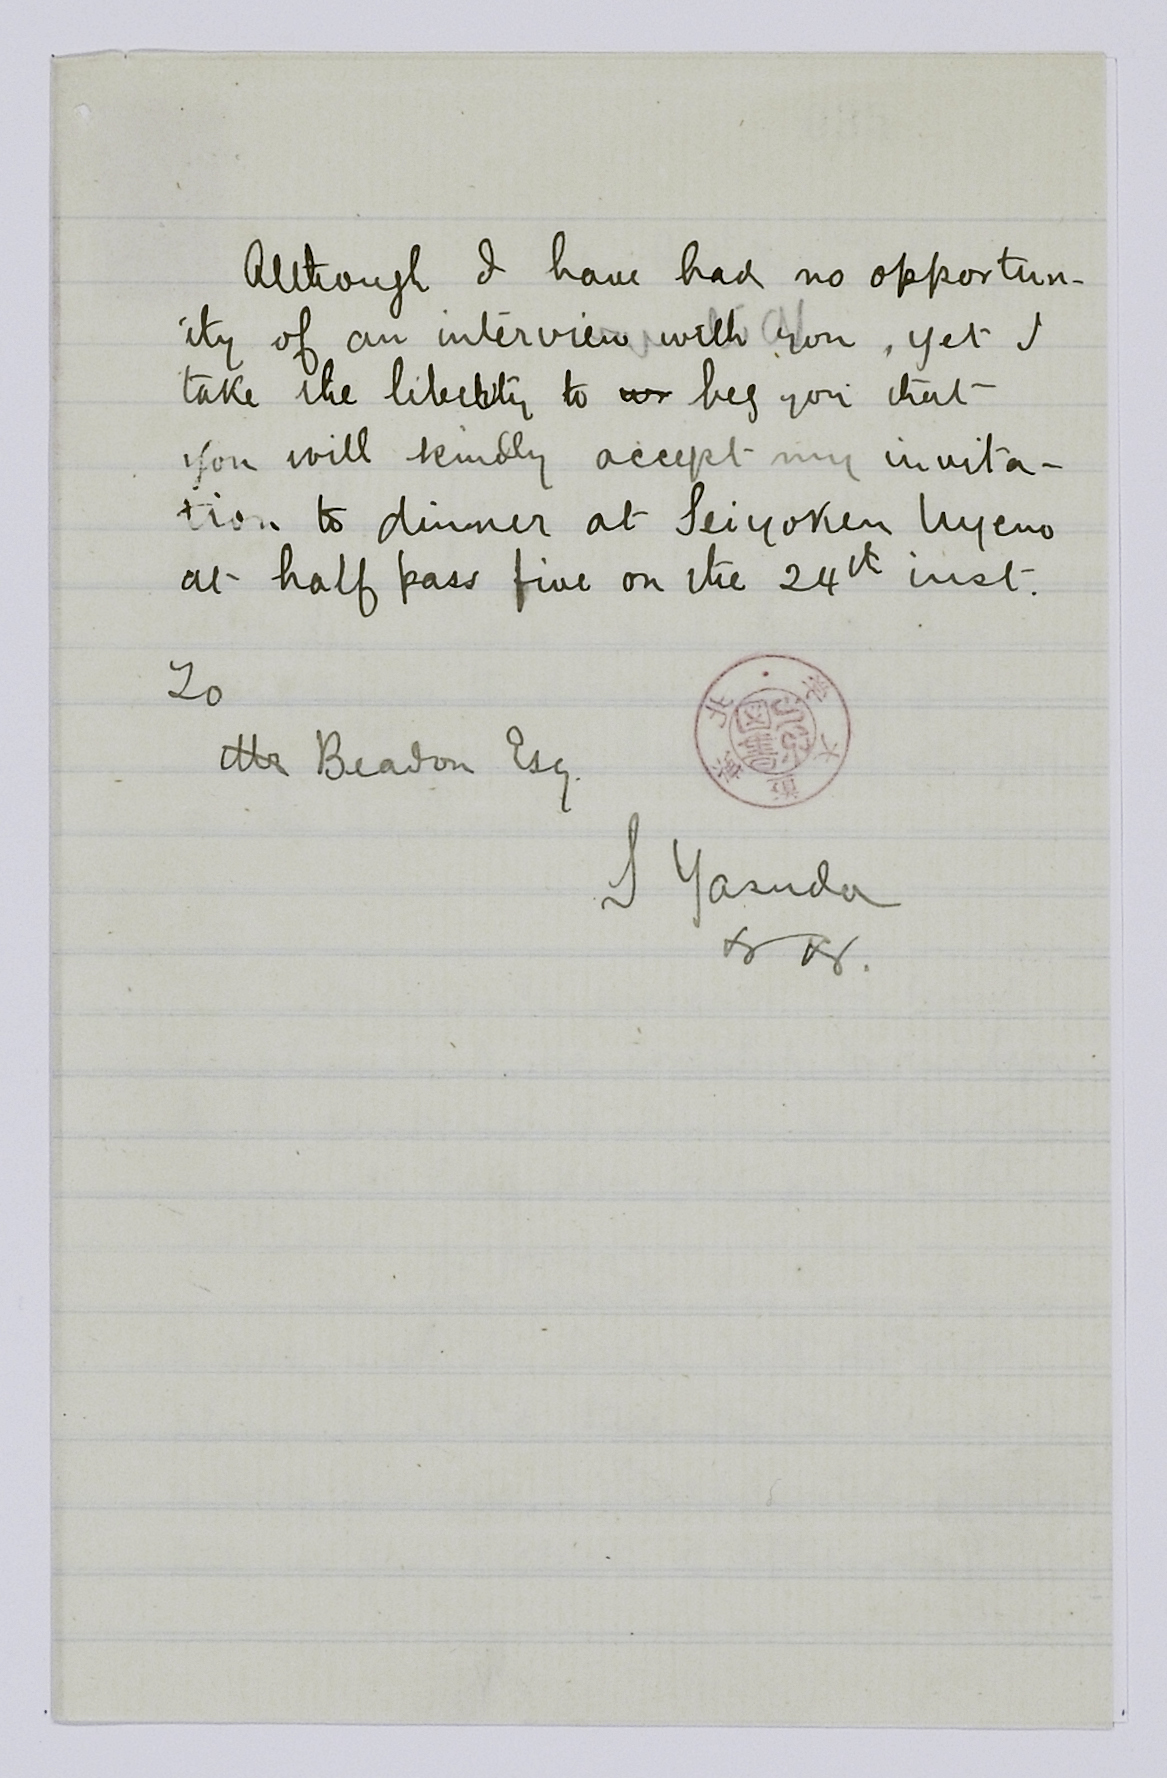 Although I have had no opportun-
ity of an interview with you, yet I
take the liberty to beg you that
you will kindly accept my invita-
tion to dinner at Seiyoken Uyeno
at half pass five on the 24th inst.
To
Mr Beadon Esq.
東北大
圖書
S Yasuda